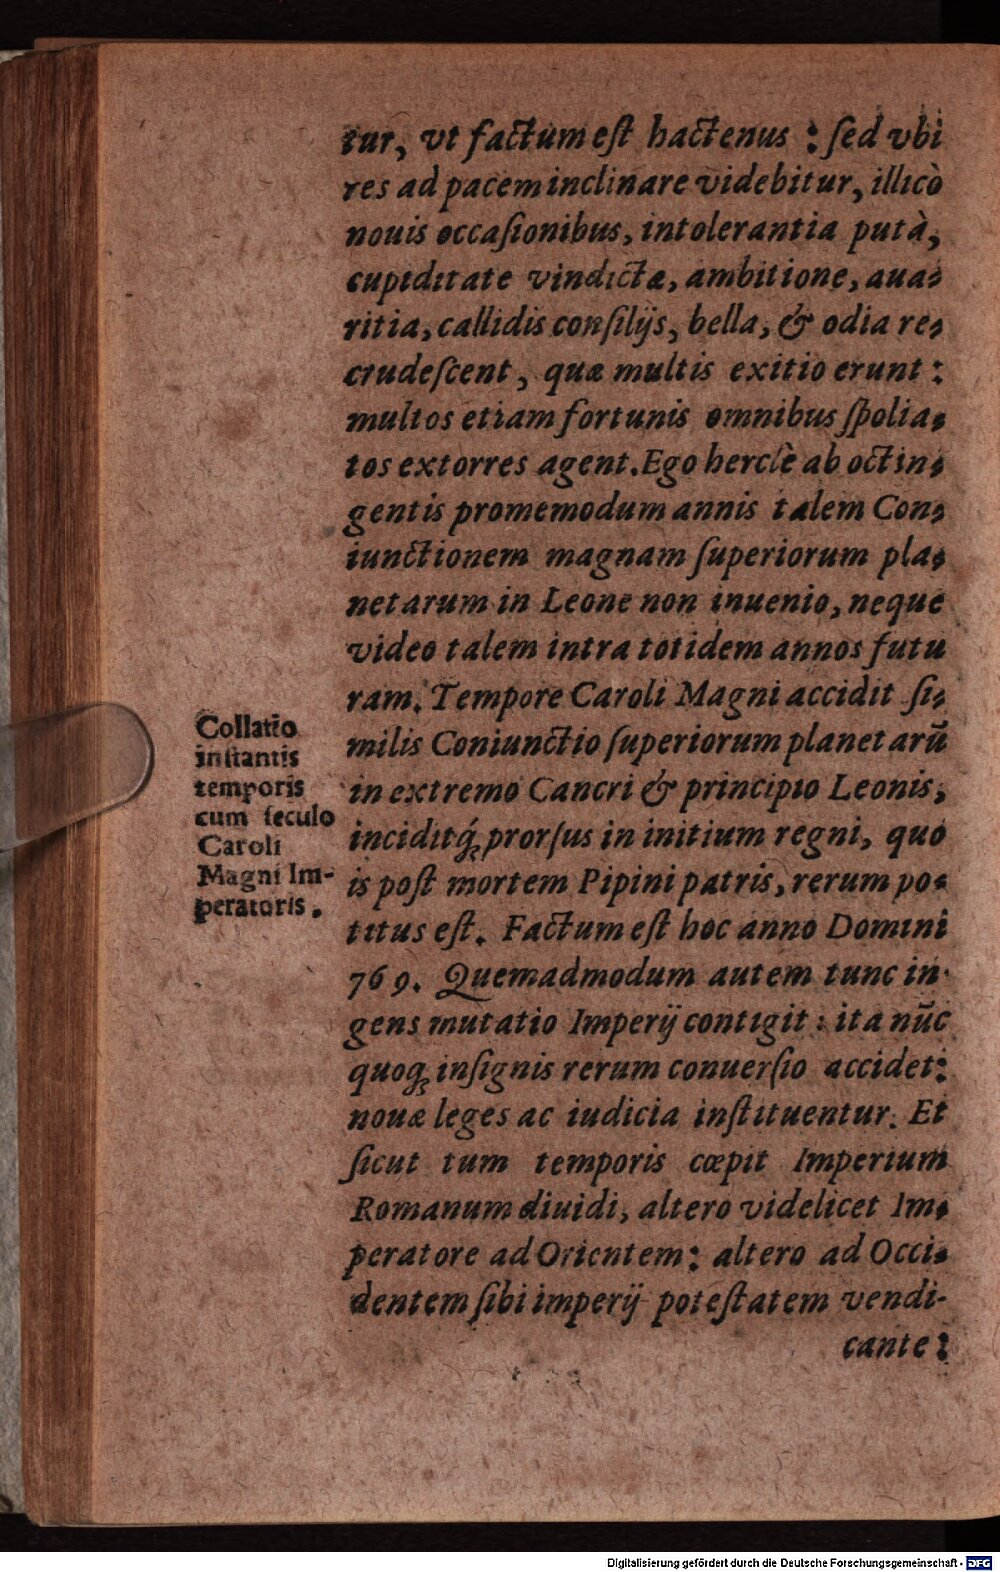 tur, vt factum eſt hactenus : ſed vbi
res ad pacem inclinare videbitur, illicò
nouis occaſionibus, intolerantia putà,
cupiditate vindictæ, ambitione, aua-
ritia, callidis conſilijs, bella, & odia re-
crudeſcent, quæ multis exitio erunt :
multos etiam fortunis omnibus ſpolia-
tos extorres agent. Ego herclè ab octin-
gentis promemodum annis talem Con-
iunctionem magnam ſuperiorum pla-
netarum in Leone non inuenio, neque
video talem intra totidem annos futu
ram. Tempore Caroli Magni accidit ſi-
milis Coniunctio ſuperiorum planetarū
in extremo Cancri & principio Leonis,
inciditq́; prorſus in initium regni, quo
is poſt mortem Pipini patris, rerum po-
titus eſt. Factum eſt hoc anno Domini
769. Quemadmodum autem tunc in-
gens mutatio Imperij contigit : ita nūc
quoq; inſignis rerum conuerſio accidet :
nouæ leges ac iudicia inſtituentur. Et
ſicut tum temporis cœpit Imperium
Romanum diuidi, altero videlicet Im-
peratore ad Orientem : altero ad Occi-
dentem ſibi imperij poteſtatem vendi-
cante :
Collatio
inſtantis
temporis
cum ſeculo
Caroli
Magni Im-
peratoris.
Digitalisierung gefördert durch die Deutsche Forschungsgemeinschaft - DFG